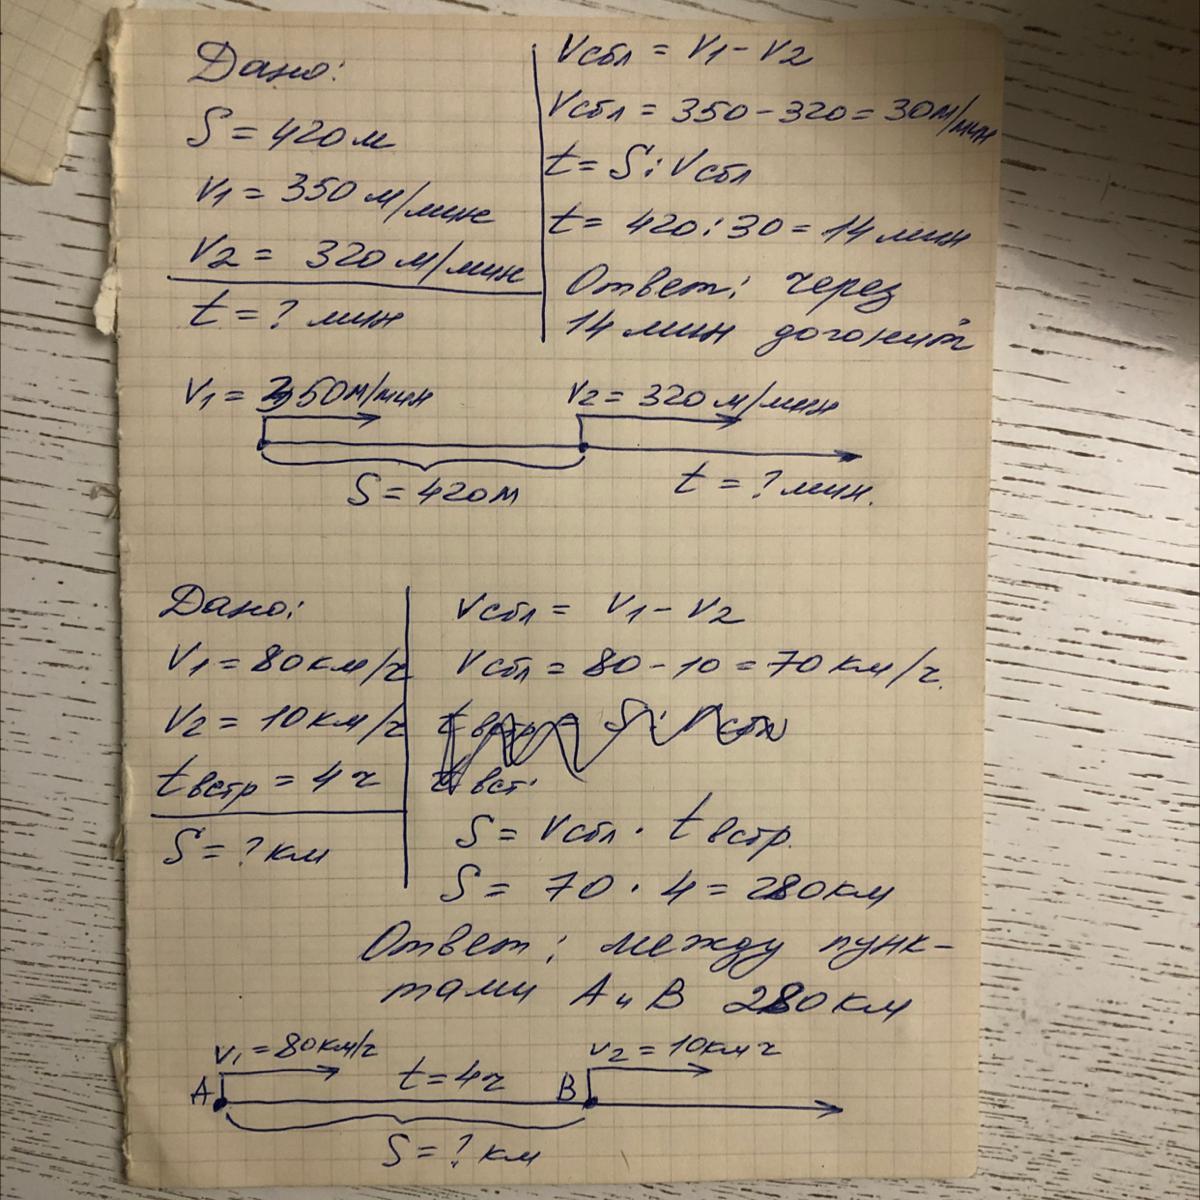 Дано:
S = 420 м
V1 = 350 м/мин
V2 = 320 м/мин
t = ? мин
Vсбл = V1 - V2
Vсбл = 350 - 320 = 30 м/мин
t = S : Vсбл
t = 420 : 30 = 14 мин
Ответ: через
14 мин догонит
V1 = 350 м/мин
V2 = 320 м/мин
S = 420 м
t = ? мин.
Дано:
V1 = 80 км/ч
V2 = 10 км/ч
tвстр = 4 ч
S = ? км
Vсбл = V1 - V2
Vсбл = 80 - 10 = 70 км/ч.
S = Vсбл · tвстр.
S = 70 · 4 = 280 км
Ответ: между пунк-
тами А и В 280 км
V1 = 80 км/ч
V2 = 10 км ч
А
t = 4 ч
В
S = ? км